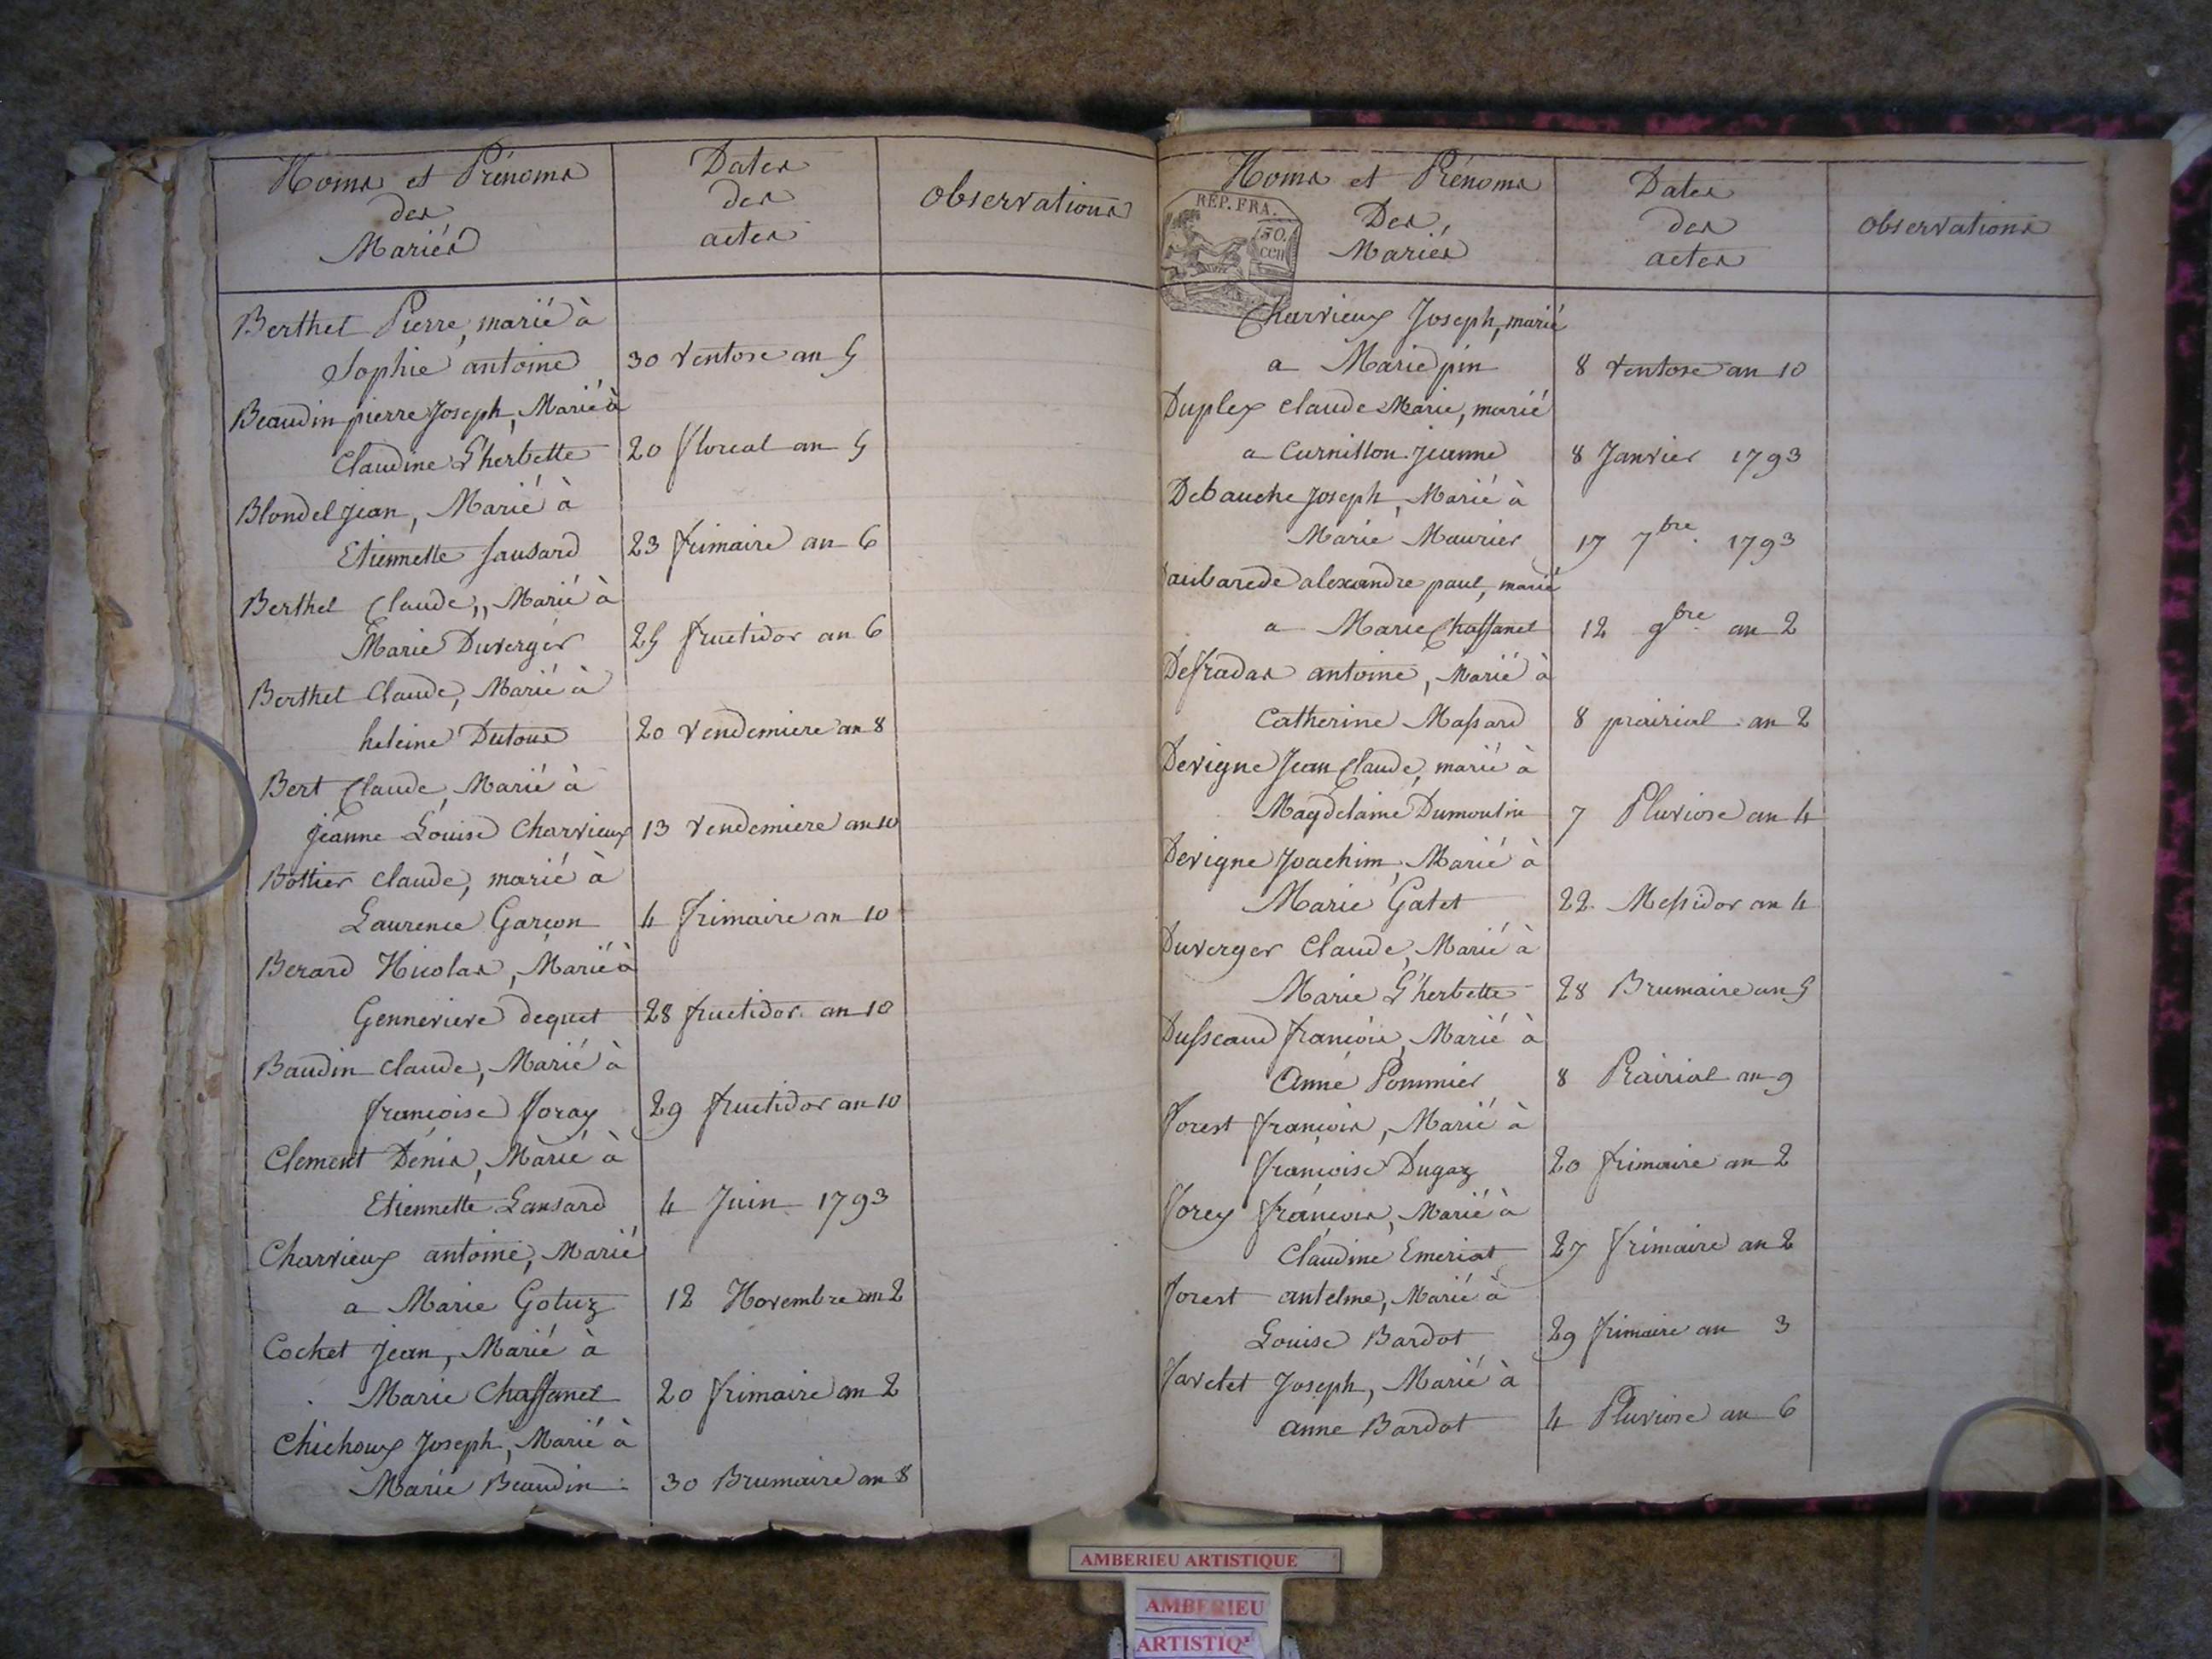 Noms et Prénoms
des
Mariés
Dates
des
actes
Observations
Berthet Pierre, marié à
Sophie antoine 30 Ventose an 5
Beaudin pierre Joseph, Marié à
Claudine L'herbette 20 floreal an 5
Blondel jean, Marié à
Etiennette Lansard 23 frimaire an 6
Berthet Claude, Marié à
Marie Duverger 25 fructidor an 6
Berthet Claude, Marié à
heleine Dutour 20 Vendemiere an 8
Bert Claude, Marié à
jeanne Louise Charvieux 13 Vendemiere an 10
Bottier claude, marié à
Laurence Garçon 4 frimaire an 10
Berard Nicolas, Marié à
Gennevieve dequet 28 fructidor an 10
Baudin claude, Marié à
françoise foray 29 fructidor an 10
Clement Dénis, Marié à
Etiennette Lansard 4 Juin 1793
Charvieux antoine, Marié
a Marie Gotuz 12 Novembre an 2
Cochet Jean, Marié à
Marie Chaffanel 20 frimaire an 2
Chichoux Joseph, Marié à
Marie Beaudin 30 Brumaire an 8
Noms et Prénoms
Des
Mariés
Dates
des
actes
Observations
REP. FRA.
50.
cen
Charvieux Joseph, marié
a Marie pin 8 Ventose an 10
Duplex claude Marie, marié
a Curnillon jeanne 8 Janvier 1793
Debauche Joseph, Marié à
Marie Maurier 17 7bre. 1793
Daubarede alexandre paul, marié
a Marie Chaffanel 12 9bre an 2
Desfradas antoine, Marié à
Catherine Massard 8 prairial an 2
Devigne Jean Claude, marié à
Magdelaine Dumoulin 7 Pluviose an 4
Devigne Joachim, Marié à
Marie Gatet 22 Messidor an 4
Duverger Claude, Marié à
Marie L'herbette 28 Brumaire an 5
Dusseaud françois, Marié à
Anne Pommier 8 Prairial an 9
Forest françois, Marié à
françoise Dugaz 20 frimaire an 2
Forey françois, Marié à
Claudine Emeriat 27 frimaire an 2
Forest antelme, Marié à
Louise Bardot 29 frimaire an 3
Favelet Joseph, Marié à
Anne Bardot 4 Pluviose an 6
AMBERIEU ARTISTIQUE
AMBERIEU
ARTISTIQ